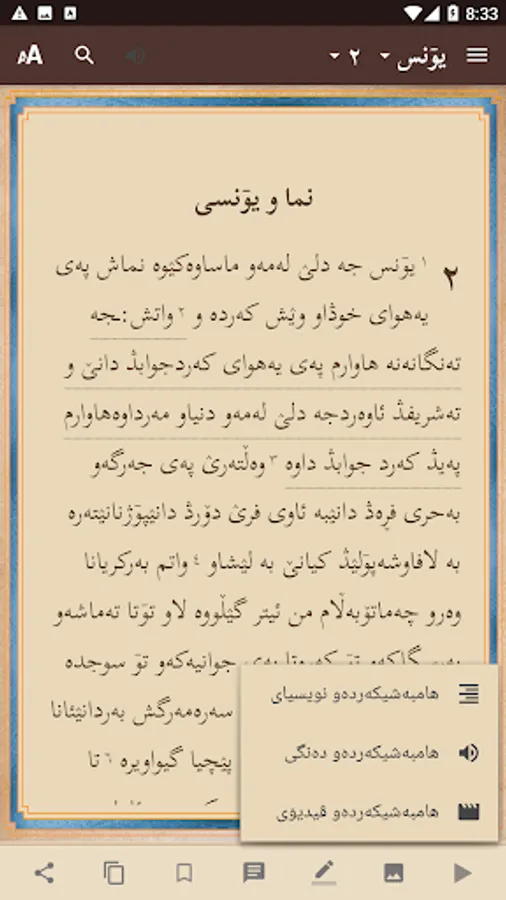 8:33
یۆنس ٢
AA
نما و یۆنسی
٢ ١ یۆنس جە دلێ لەمەو ماساوەکێوە نماش پەی
یەهوای خوڎاو وێش کەردە و ٢ واتش:ـجە
تەنگانەنە هاوارم پەی یەهوای کەردجوابڎ دانێ و
تەشریفڎ ئاوەردجە دلێ لەمەو دنیاو مەرداوەهاوارم
پەیڎ کەرد جوابڎ داوە ٣ وەڵتەرێ پەی جەرگەو
بەحری فڕەڎ دانێبە ئاوی فرێ دۆرڎ دانێپۆژنانێتەرە
بە لافاوشەپۆلێڎ کیانێ بە لێشاو ٤ واتم بەرکریانا
وەرو چەماتۆبەڵام من ئیتر گێڵووە لاو تۆتا تەماشەو
جوانیەکەو تۆ سوجدە
سەرەمەرگش بەردانێئانا
پێچیا گیواویرە ٦ تا
هامبەشیکەردەو نویسیای
هامبەشیکەردەو دەنگی
هامبەشیکەردەو ڤیدیۆی